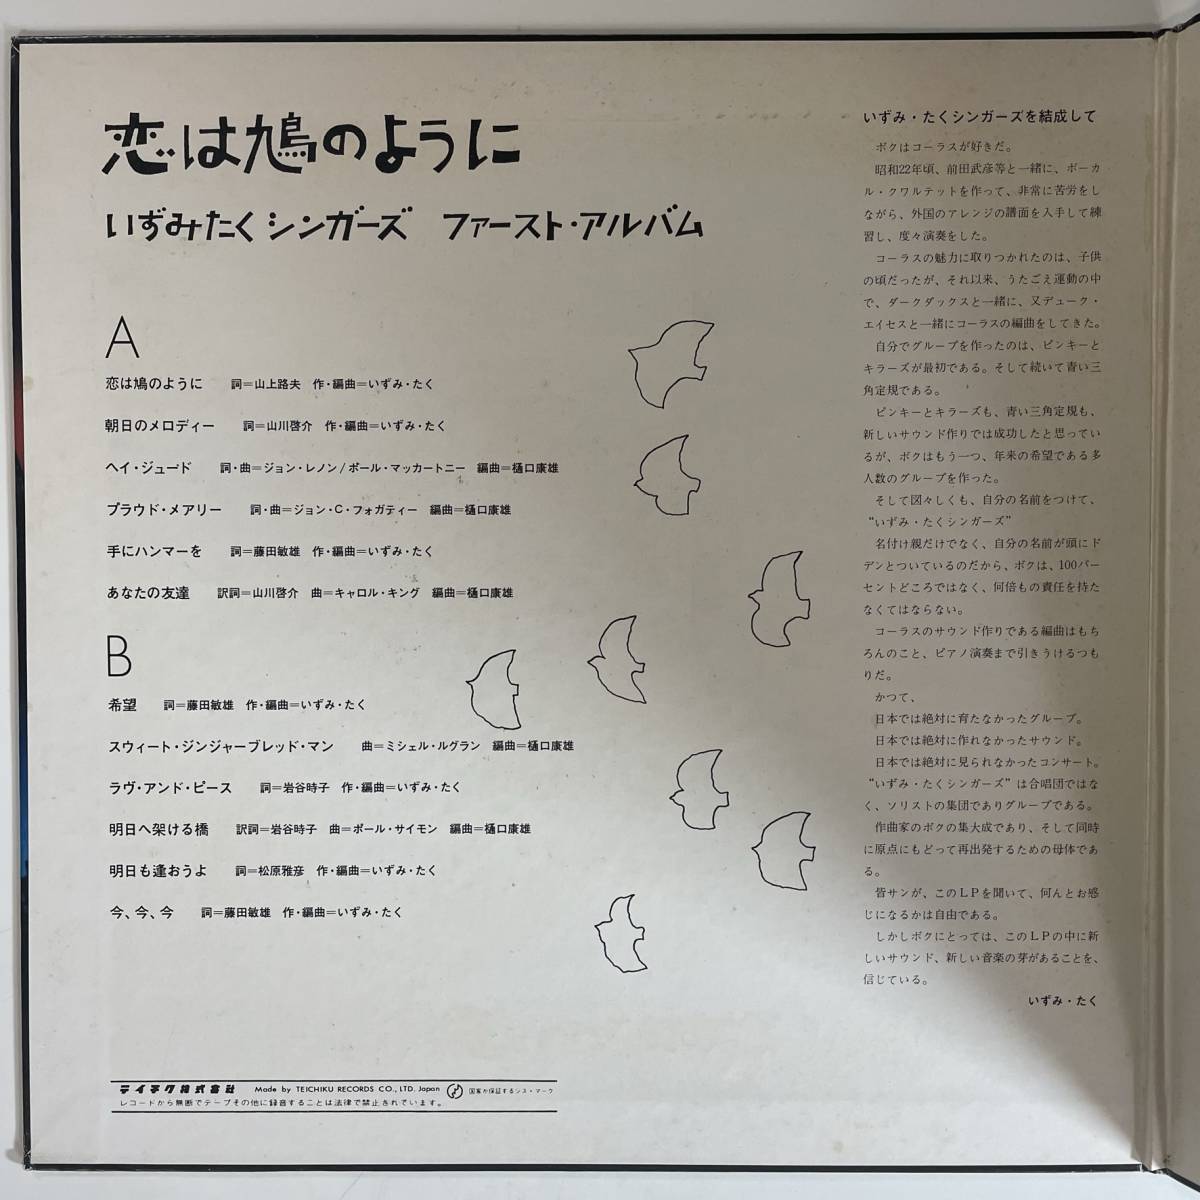 恋は鳩のように
いずみたく シンガーズ ファースト・アルバム
A
恋は鳩のように 詞＝山上路夫 作・編曲＝いずみ・たく
朝日のメロディー 詞＝山川啓介 作・編曲＝いずみ・たく
ヘイ・ジュード 詞・曲＝ジョン・レノン/ポール・マッカートニー 編曲＝樋口康雄
プラウド・メアリー 詞・曲＝ジョン・C・フォガティー 編曲＝樋口康雄
手にハンマーを 詞＝藤田敏雄 作・編曲＝いずみ・たく
あなたの友達 訳詞＝山川啓介 曲＝キャロル・キング 編曲＝樋口康雄
B
希望 詞＝藤田敏雄 作・編曲＝いずみ・たく
スウィート・ジンジャーブレッド・マン 曲＝ミシェル・ルグラン 編曲＝樋口康雄
ラヴ・アンド・ピース 詞＝岩谷時子 作・編曲＝いずみ・たく
明日へ架ける橋 訳詞＝岩谷時子 曲＝ポール・サイモン 編曲＝樋口康雄
明日も逢おうよ 詞＝松原雅彦 作・編曲＝いずみ・たく
今、今、今 詞＝藤田敏雄 作・編曲＝いずみ・たく
いずみ・たくシンガーズを結成して
ボクはコーラスが好きだ。
昭和22年頃、前田武彦等と一緒に、ボーカ
ル・クワルテットを作って、非常に苦労をし
ながら、外国のアレンジの譜面を入手して練
習し、度々演奏をした。
コーラスの魅力に取りつかれたのは、子供
の頃だったが、それ以来、うたごえ運動の中
で、ダークダックスと一緒に、又デューク・
エイセスと一緒にコーラスの編曲をしてきた。
自分でグループを作ったのは、ピンキーと
キラーズが最初である。そして続いて青い三
角定規である。
ピンキーとキラーズも、青い三角定規も、
新しいサウンド作りでは成功したと思ってい
るが、ボクはもう一つ、年来の希望である多
人数のグループを作った。
そして図々しくも、自分の名前をつけて、
“いずみ・たくシンガーズ”
名付け親だけでなく、自分の名前が頭にド
デンとついているのだから、ボクは、100パー
セントどころではなく、何倍もの責任を持た
なくてはならない。
コーラスのサウンド作りである編曲はもち
ろんのこと、ピアノ演奏まで引きうけるつも
りだ。
かつて、
日本では絶対に育たなかったグループ。
日本では絶対に作れなかったサウンド。
日本では絶対に見られなかったコンサート。
“いずみ・たくシンガーズ”は合唱団ではな
く、ソリストの集団でありグループである。
作曲家のボクの集大成であり、そして同時
に原点にもどって再出発するための母体であ
る。
皆サンが、このＬＰを聞いて、何んとお感
じになるかは自由である。
しかしボクにとっては、このＬＰの中に新
しいサウンド、新しい音楽の芽があることを、
信じている。
いずみ・たく
テイチク株式会社 Made by TEICHIKU RECORDS CO., LTD. Japan 国家が保証するジス・マーク
レコードから無断でテープその他に録音することは法律で禁止されています。